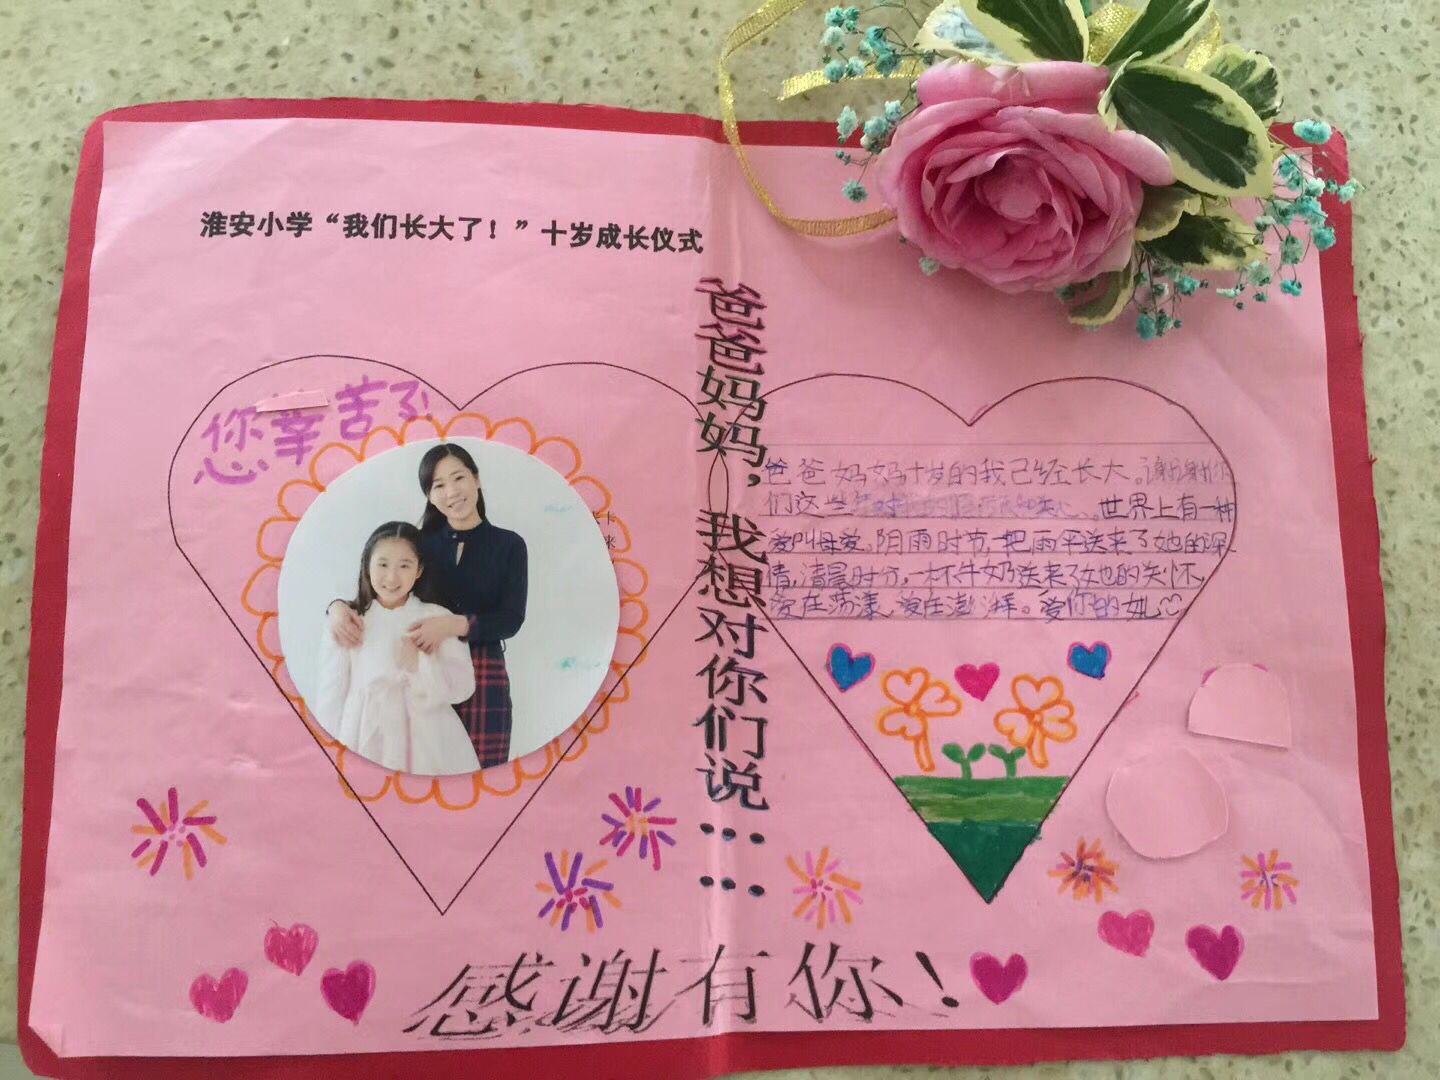 淮安小学“我们长大了！”十岁成长仪式
爸爸妈妈，我想对你们说……
您辛苦了!
爸爸妈妈十岁的我已经长大。谢谢你
们这些年对 。世界上有一种
爱叫母爱。阴雨时节，一把雨伞送来了她的深
情，清晨时分，一杯牛奶送来了她的关怀，
爱在荡漾，爱在澎湃。爱你的
感谢有你！